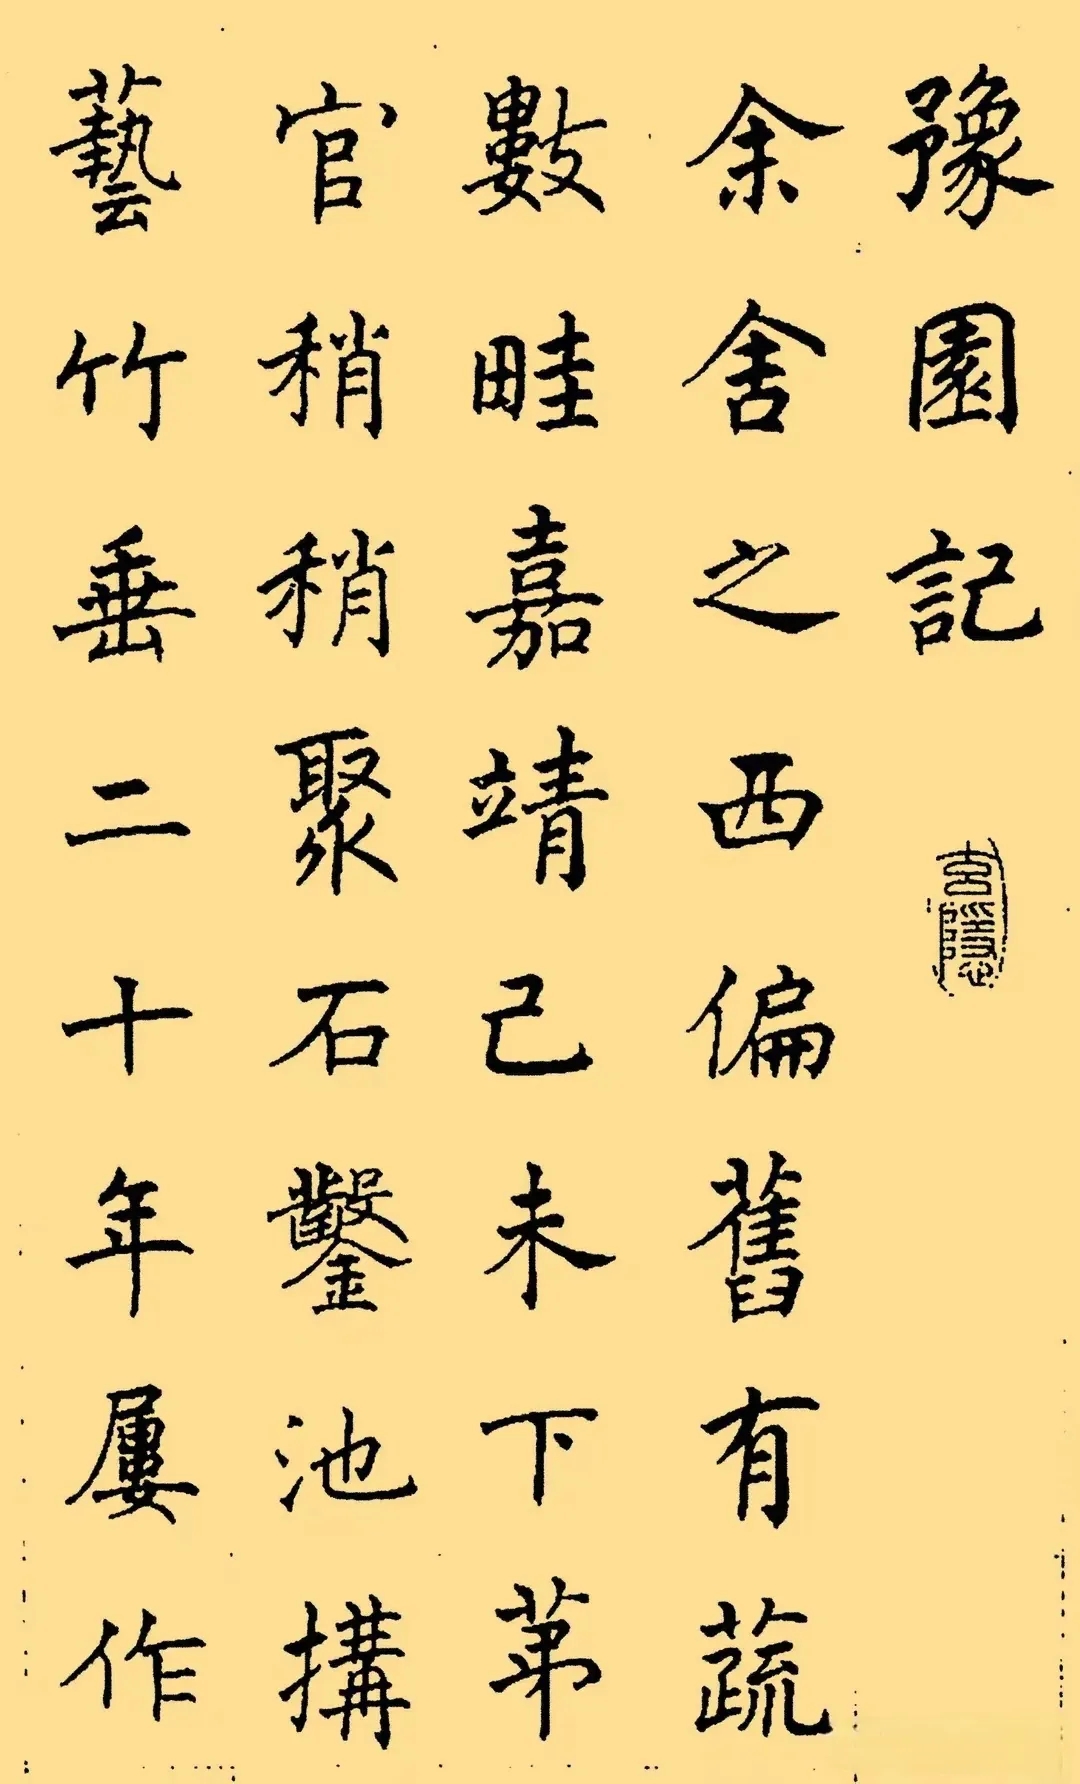 豫園記
余舍之西偏舊有蔬
數畦嘉靖己未下苐
官稍稍聚石鑿池搆
藝竹垂二十年屢作